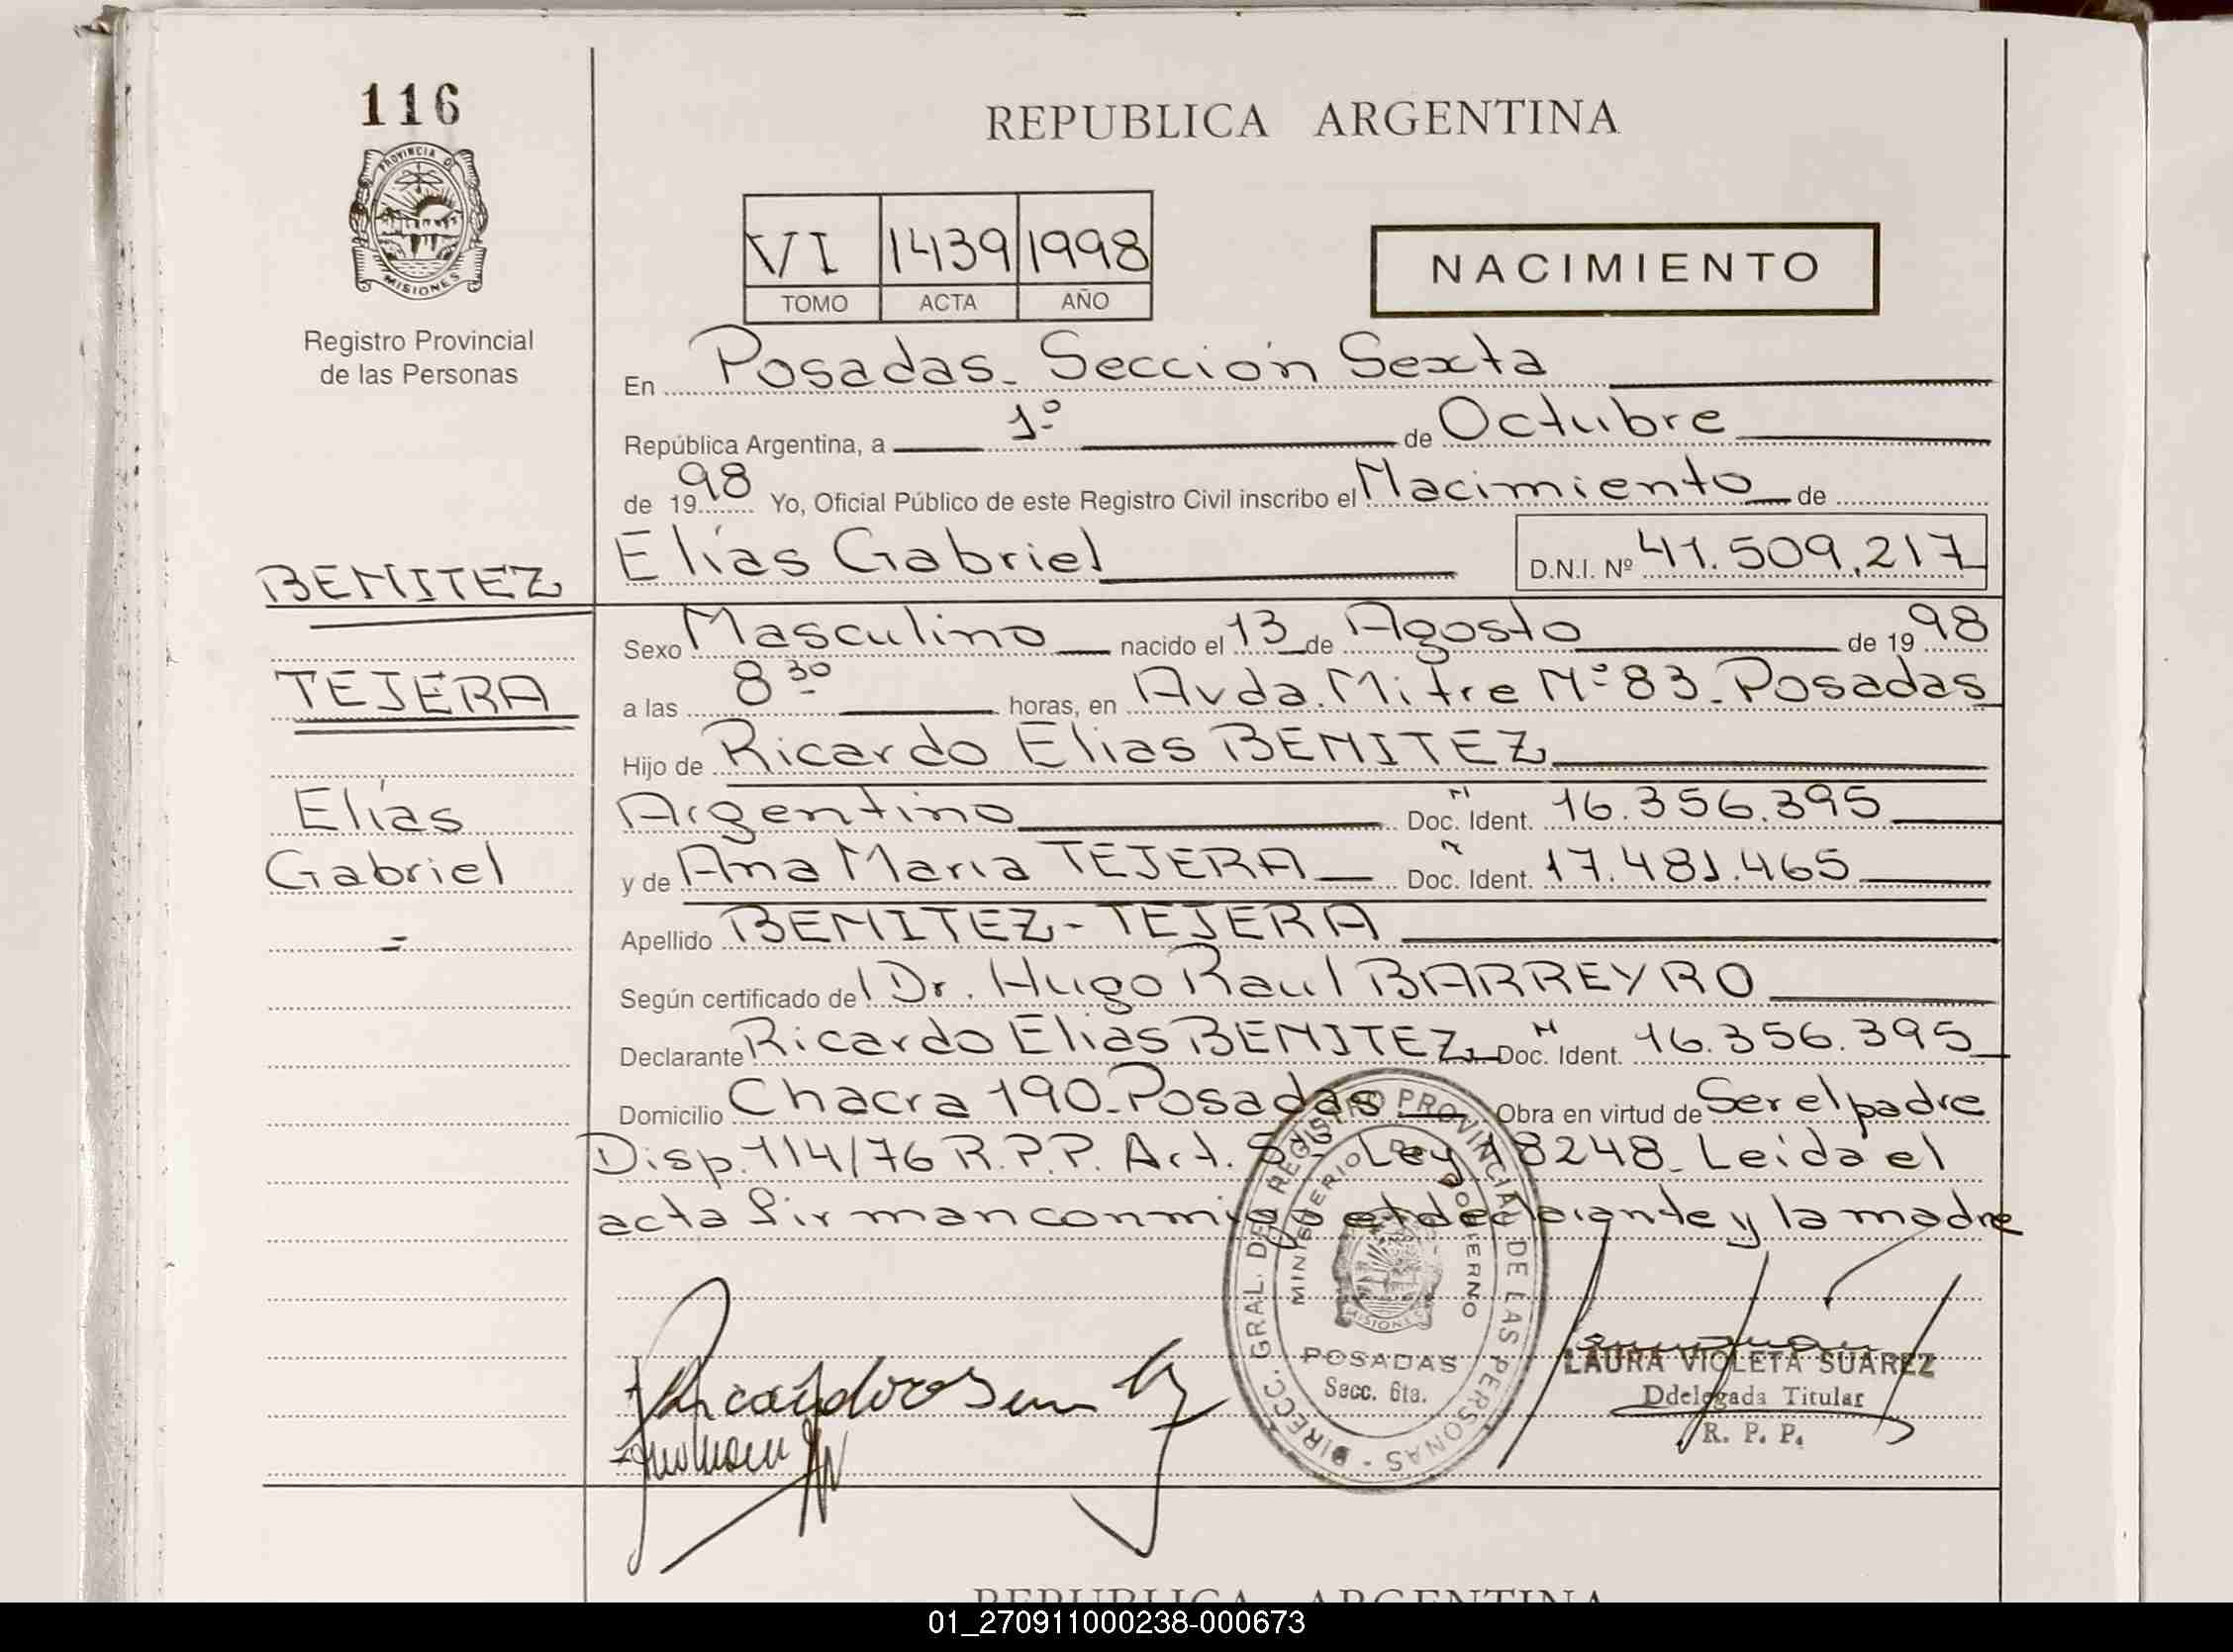 116
PROVINCIA DE
MISIONES
Registro Provincial
de las Personas
REPUBLICA ARGENTINA
VI 1439 1998
TOMO ACTA AÑO
NACIMIENTO
En Posadas_ Sección Sexta
República Argentina, a 1º de Octubre
de 1998 Yo, Oficial Público de este Registro Civil inscribo el Nacimiento de
Elías Gabriel D.N.I. Nº 41.509.217
BENITEZ
TEJERA
Elías
Gabriel
Sexo Masculino nacido el 13 de Agosto de 1998
a las 8 30 horas, en Avda. Mitre Nº 83_ Posadas
Hijo de Ricardo Elias BENITEZ
Argentino N Doc. Ident. 16.356.395
y de Ana Maria TEJERA N Doc. Ident. 17.481.465
Apellido BENITEZ - TEJERA
Según certificado del Dr. Hugo Raul BARREYRO
Declarante Ricardo Elias BENITEZ N Doc. Ident. 16.356.395
Domicilio Chacra 190_ Posadas Obra en virtud de Ser el padre
Disp. 114/76 R.P.P. Art. 5º- Ley 18248_ Leida el
acta firman conmigo el declarante y la madre
DIRECC. GRAL. DEL REGISTRO PROVINCIAL DE LAS PERSONAS -
MINISTERIO DE GOBIERNO
MISIONES
POSADAS
Secc. 6ta.
LAURA VIOLETA SUAREZ
Ddelegada Titular
R. P. P.
REPUBLICA ARGENTINA
01_270911000238-000673